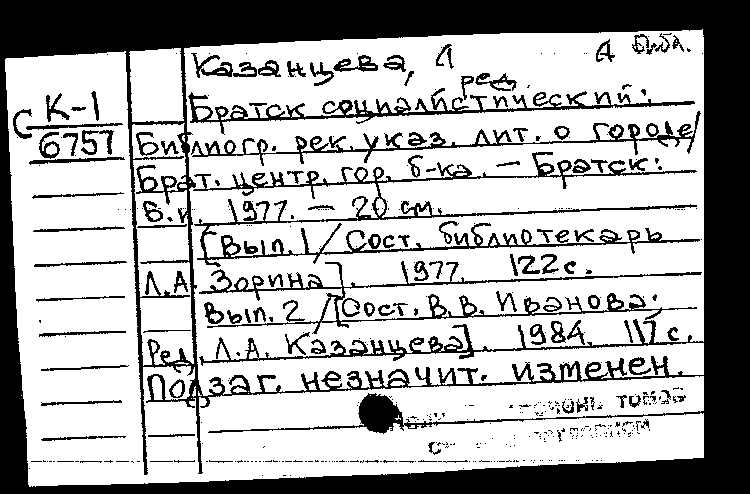 Казанцева, Л
А Библ.
ред.
С К-1
6757
Братск социалистический:
Библиогр. рек. указ. лит. о городе/
Брат. центр. гор. б-ка. – Братск:
Б.и. 1977. – 20 см.
[Вып. 1 / Сост. библиотекарь
Л.А. Зорина]. 1977. 122 с.
Вып. 2 / [Сост. В.В. Иванова;
Ред. Л.А. Казанцева]. 1984. 117 с.
Подзаг. незначит. изменен.
томов